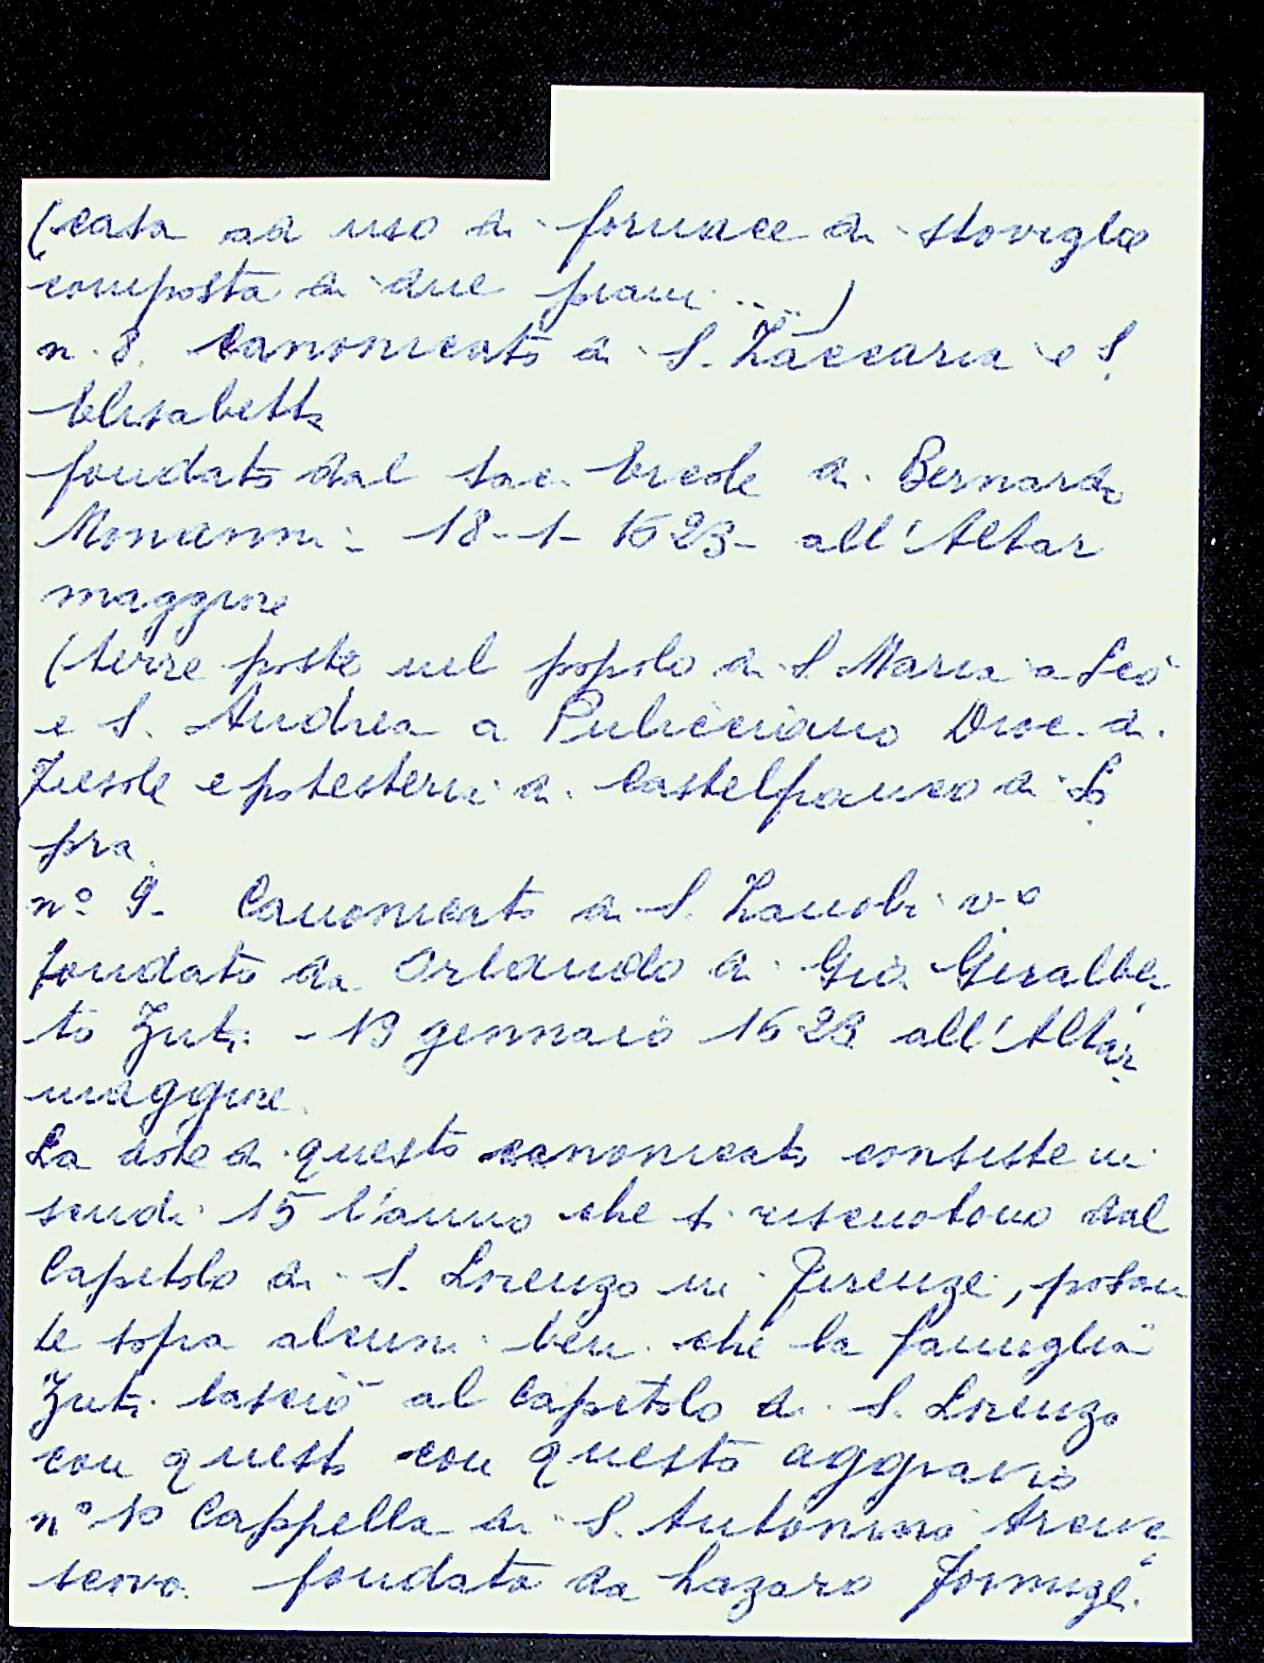 (casa ad uso di fornace di stoviglie
composta di due piani ....)
n. 8. Canonicato di S. Zaccaria e S.
Elisabetta
fondato dal sac. Ercole di Bernardo
Monanni - 18-1-1623- all'Altar
maggiore
(terre poste nel popolo di S. Maria a Scò
e S. Andrea a Pulicciano Dioc. di
Fiesole e potesteria di Castelfranco di So
pra.
n° 9- Canonicato di S. Zanobi v.o
fondato da Orlando di Gio. Giralber
to Zuti - 19 gennaio 1623 all'Altar
maggiore.
La dote di questo canonicato consiste in
scudi 15 l'anno che si riscuotono dal
Capitolo di S. Lorenzo in Firenze, posan
te sopra alcuni beni che la famiglia
Zuti lasciò al Capitolo di S. Lorenzo
con questo con questo aggravio
n° 10 Cappella di S. Antonino Arcive
scovo. fondata da Lazaro